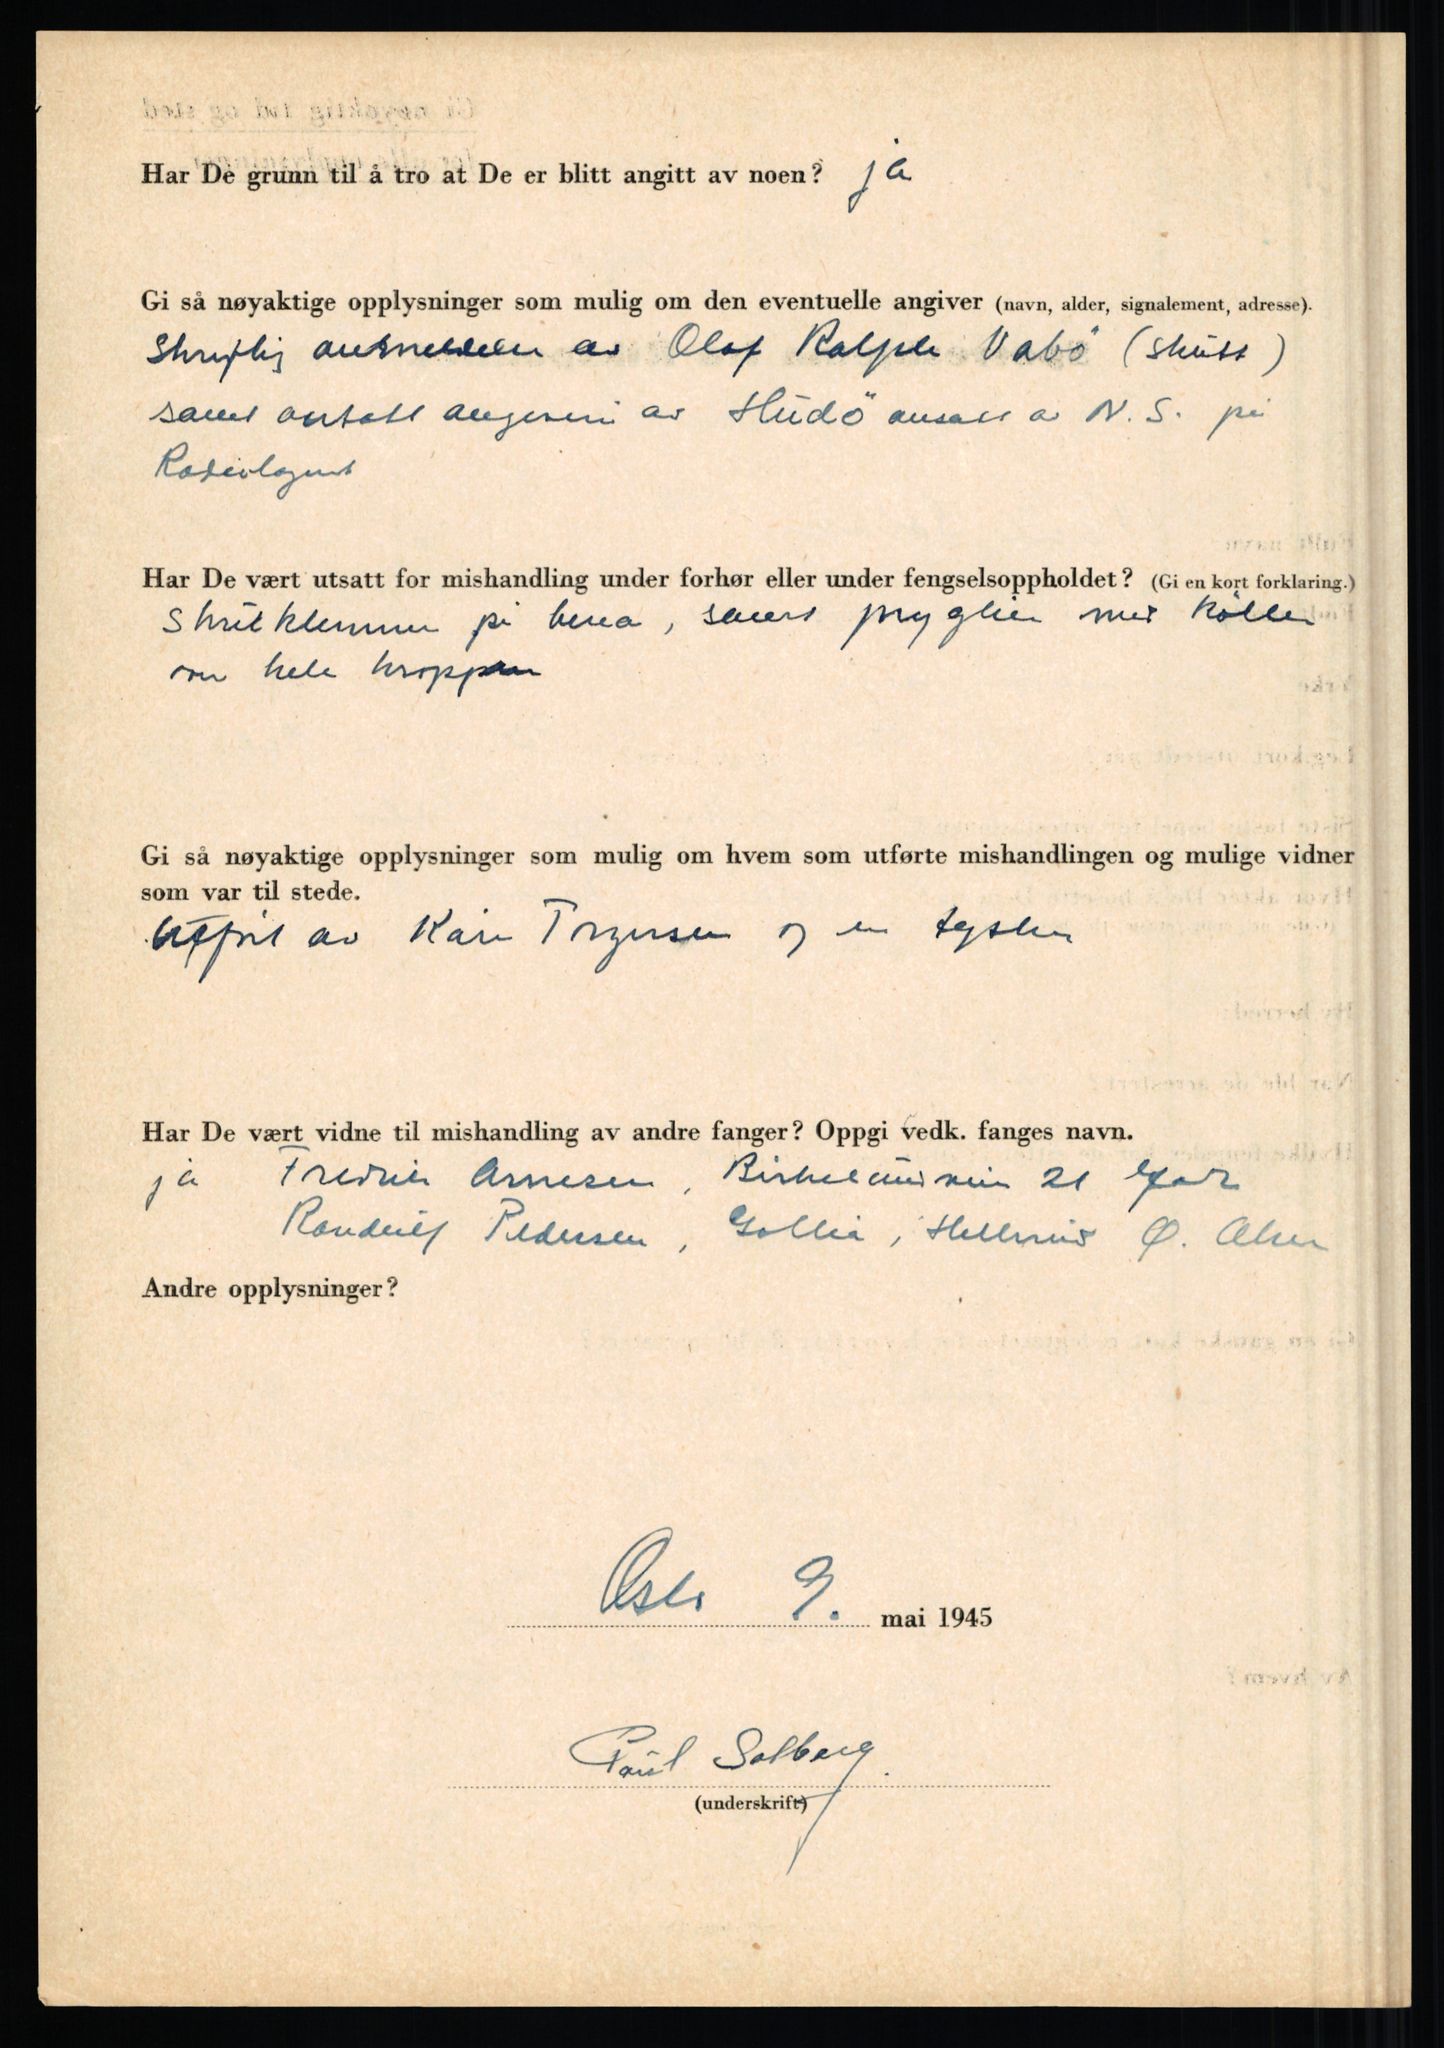 Har De grunn til å tro at De er blitt angitt av noen? ja
Gi så nøyaktige opplysninger som mulig om den eventuelle angiver (navn, alder, signalement, adresse).
Skriftlig anmeldelse av Olaf Ralph Vabö (skutt)
samt antatt angiveri av Hudö ansatt av N. S. på
Radiolageret
Har De vært utsatt for mishandling under forhør eller under fengselsoppholdet? (Gi en kort forklaring.)
Skruklemmer på bena, samt pryglier med køller
over hele kroppen
Gi så nøyaktige opplysninger som mulig om hvem som utførte mishandlingen og mulige vidner
som var til stede.
Utført av Kåre Torgersen og en tysker
Har De vært vidne til mishandling av andre fanger? Oppgi vedk. fanges navn.
ja Fredrik Arnesen, 21
Randulf Pedersen, Ø. Aker
Andre opplysninger?
Oslo 9. mai 1945
Paul Solberg
(underskrift)